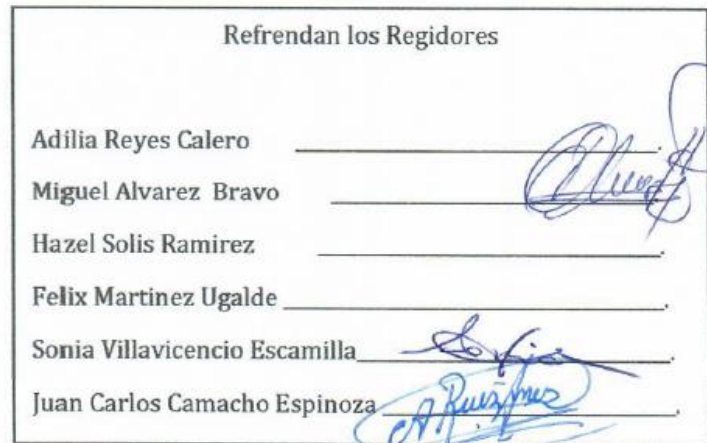 Refrendan los Regidores
Adilia Reyes Calero
Miguel Alvarez Bravo
Hazel Solis Ramirez
Felix Martinez Ugalde
Sonia Villavicencio Escamilla
Juan Carlos Camacho Espinoza